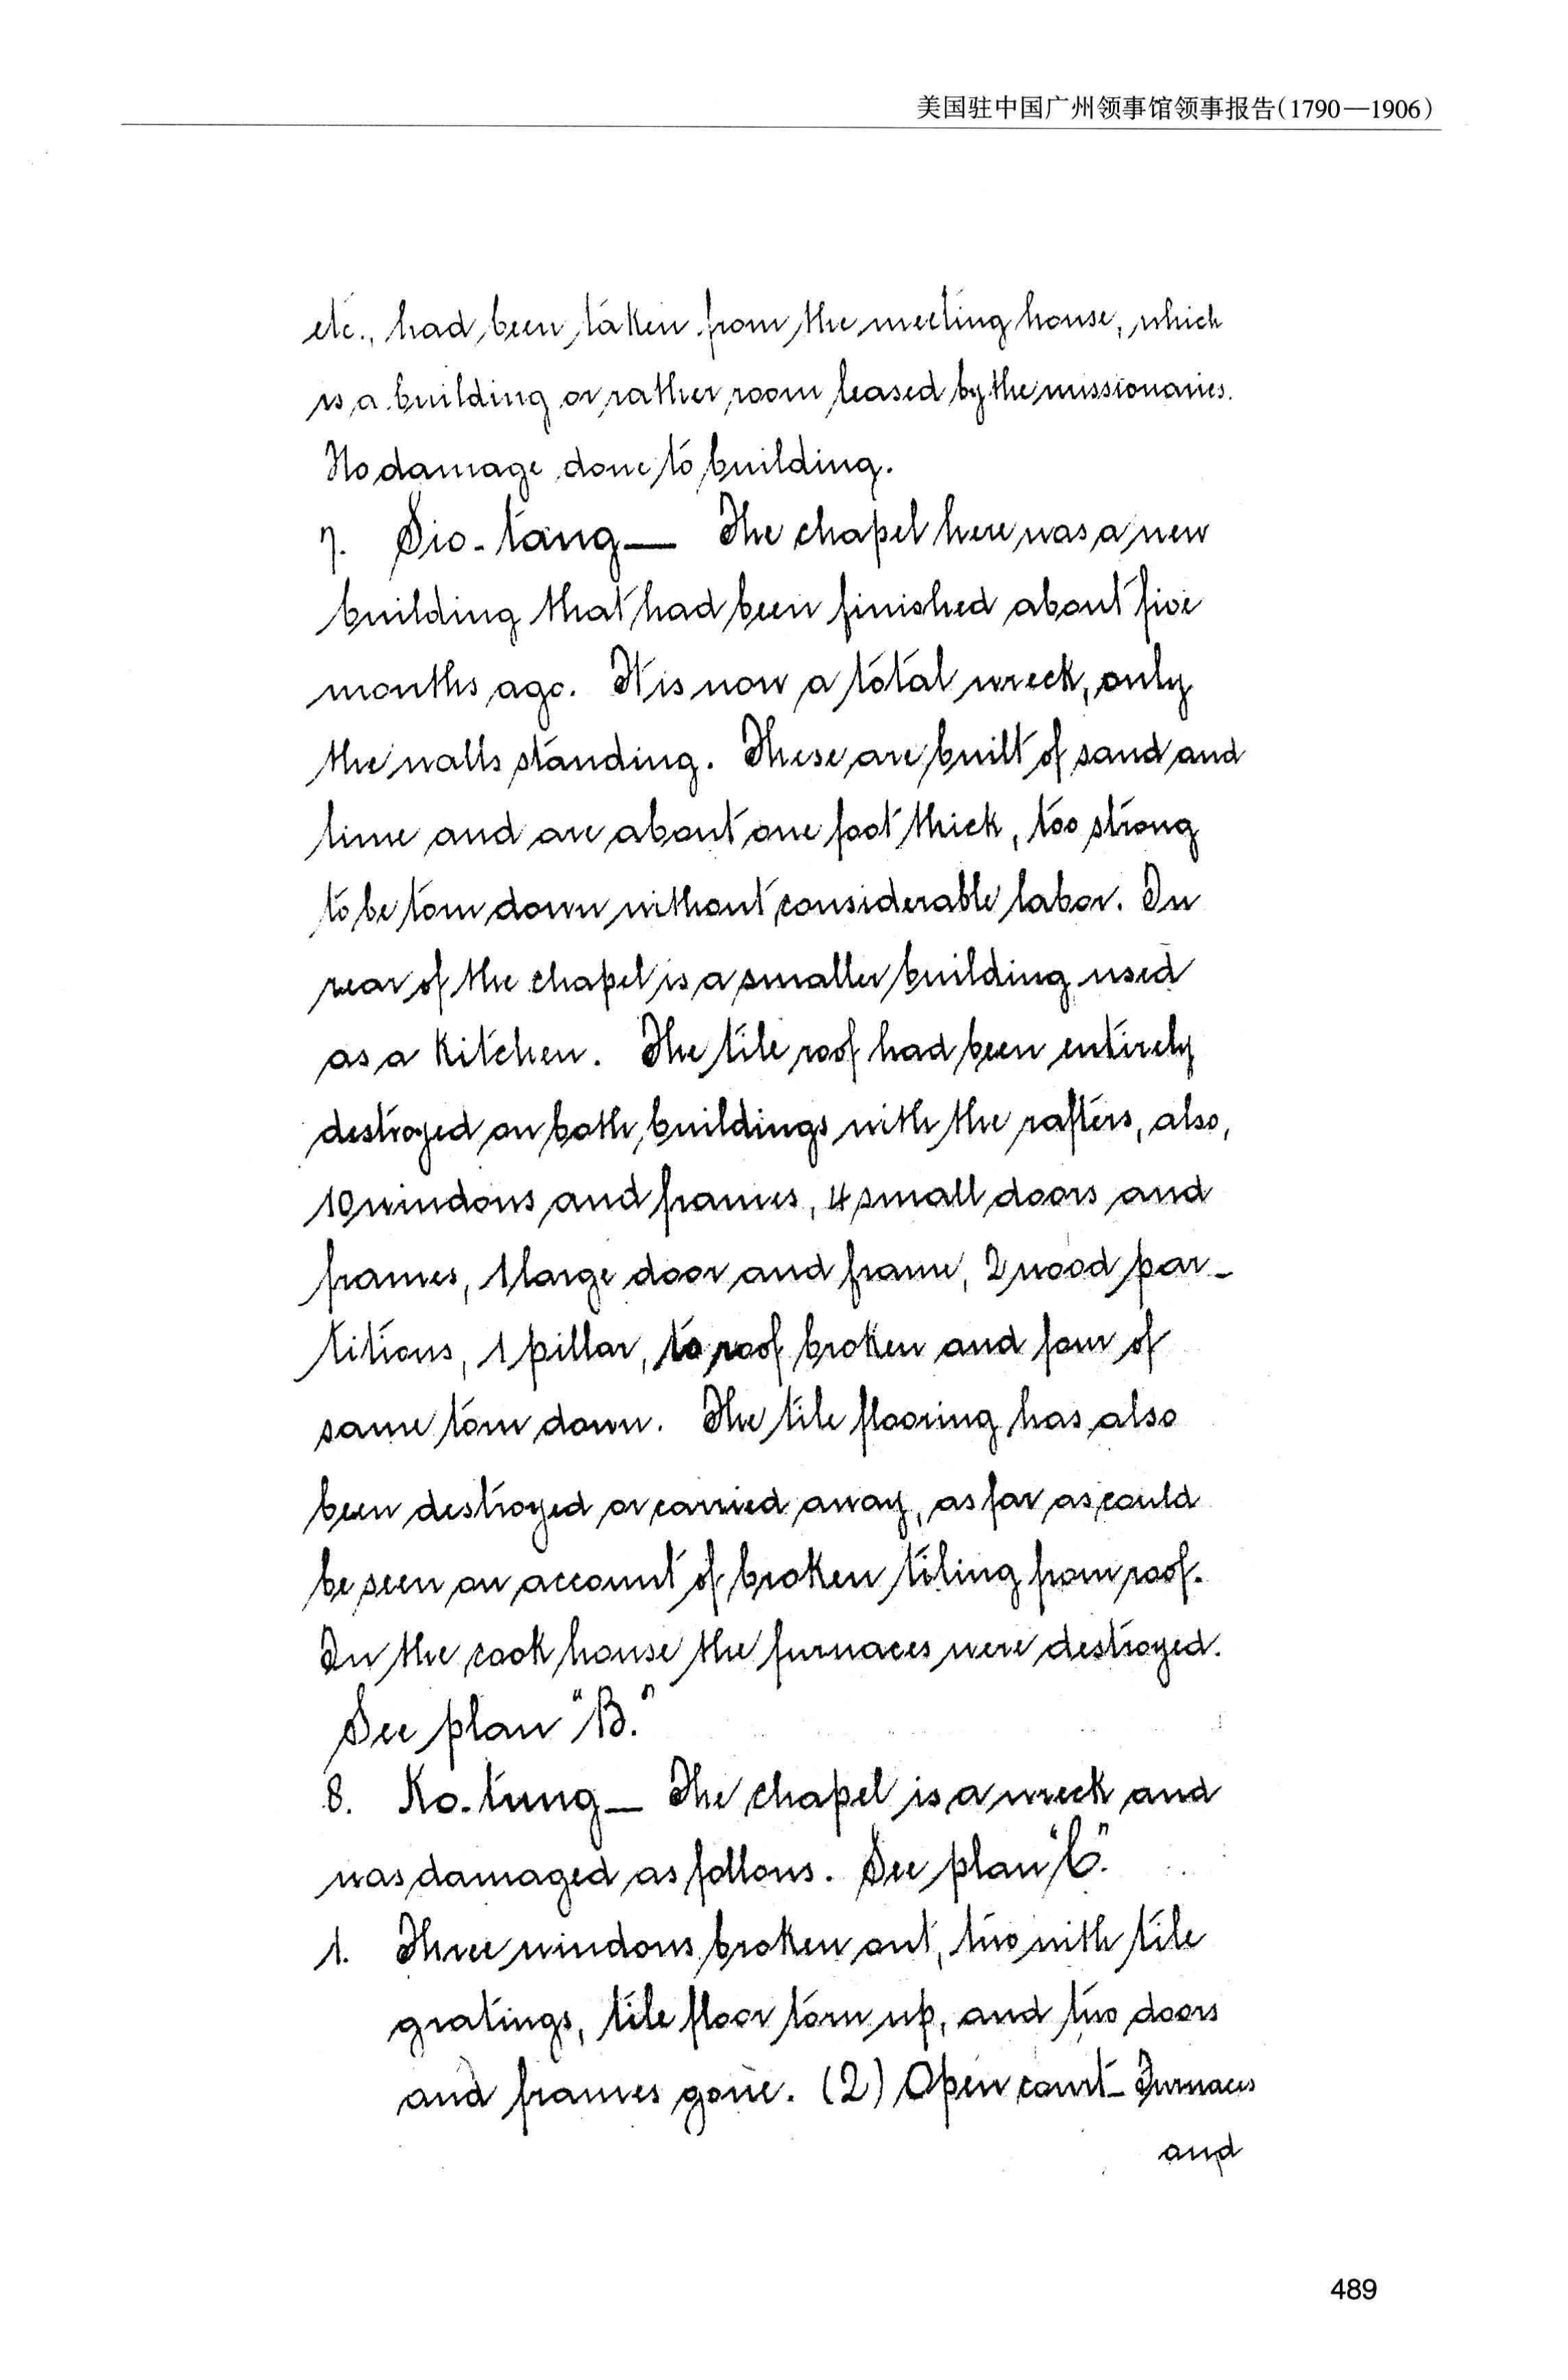 美国驻中国广州领事馆领事报告(1790—1906)
etc., had been taken from the meeting house, which
is a building or rather room leased by the missionaries.
No damage done to building.
7. Sio-tang— The chapel here was a new
building that had been finished about five
months ago. It is now a total wreck, only
the walls standing. These are built of sand and
lime and are about one foot thick, too strong
to be torn down without considerable labor. In
rear of the chapel is a smaller building used
as a kitchen. The tile roof had been entirely
destroyed on both buildings with the rafters, also,
10 windows and frames, 4 small doors and
frames, 1 large door and frame, 2 wood par-
titions, 1 pillar, to roof broken and four of
same torn down. The tile flooring has also
been destroyed or carried away, as far as could
be seen on account of broken tiling from roof.
In the cook house the furnaces were destroyed.
See plan "B."
8. Ko-tung— The chapel is a wreck and
was damaged as follows. See plan "C".
1. Three windows broken out, two with tile
gratings, tile floor torn up, and two doors
and frames gone. (2) Open court— Furnaces
and
489